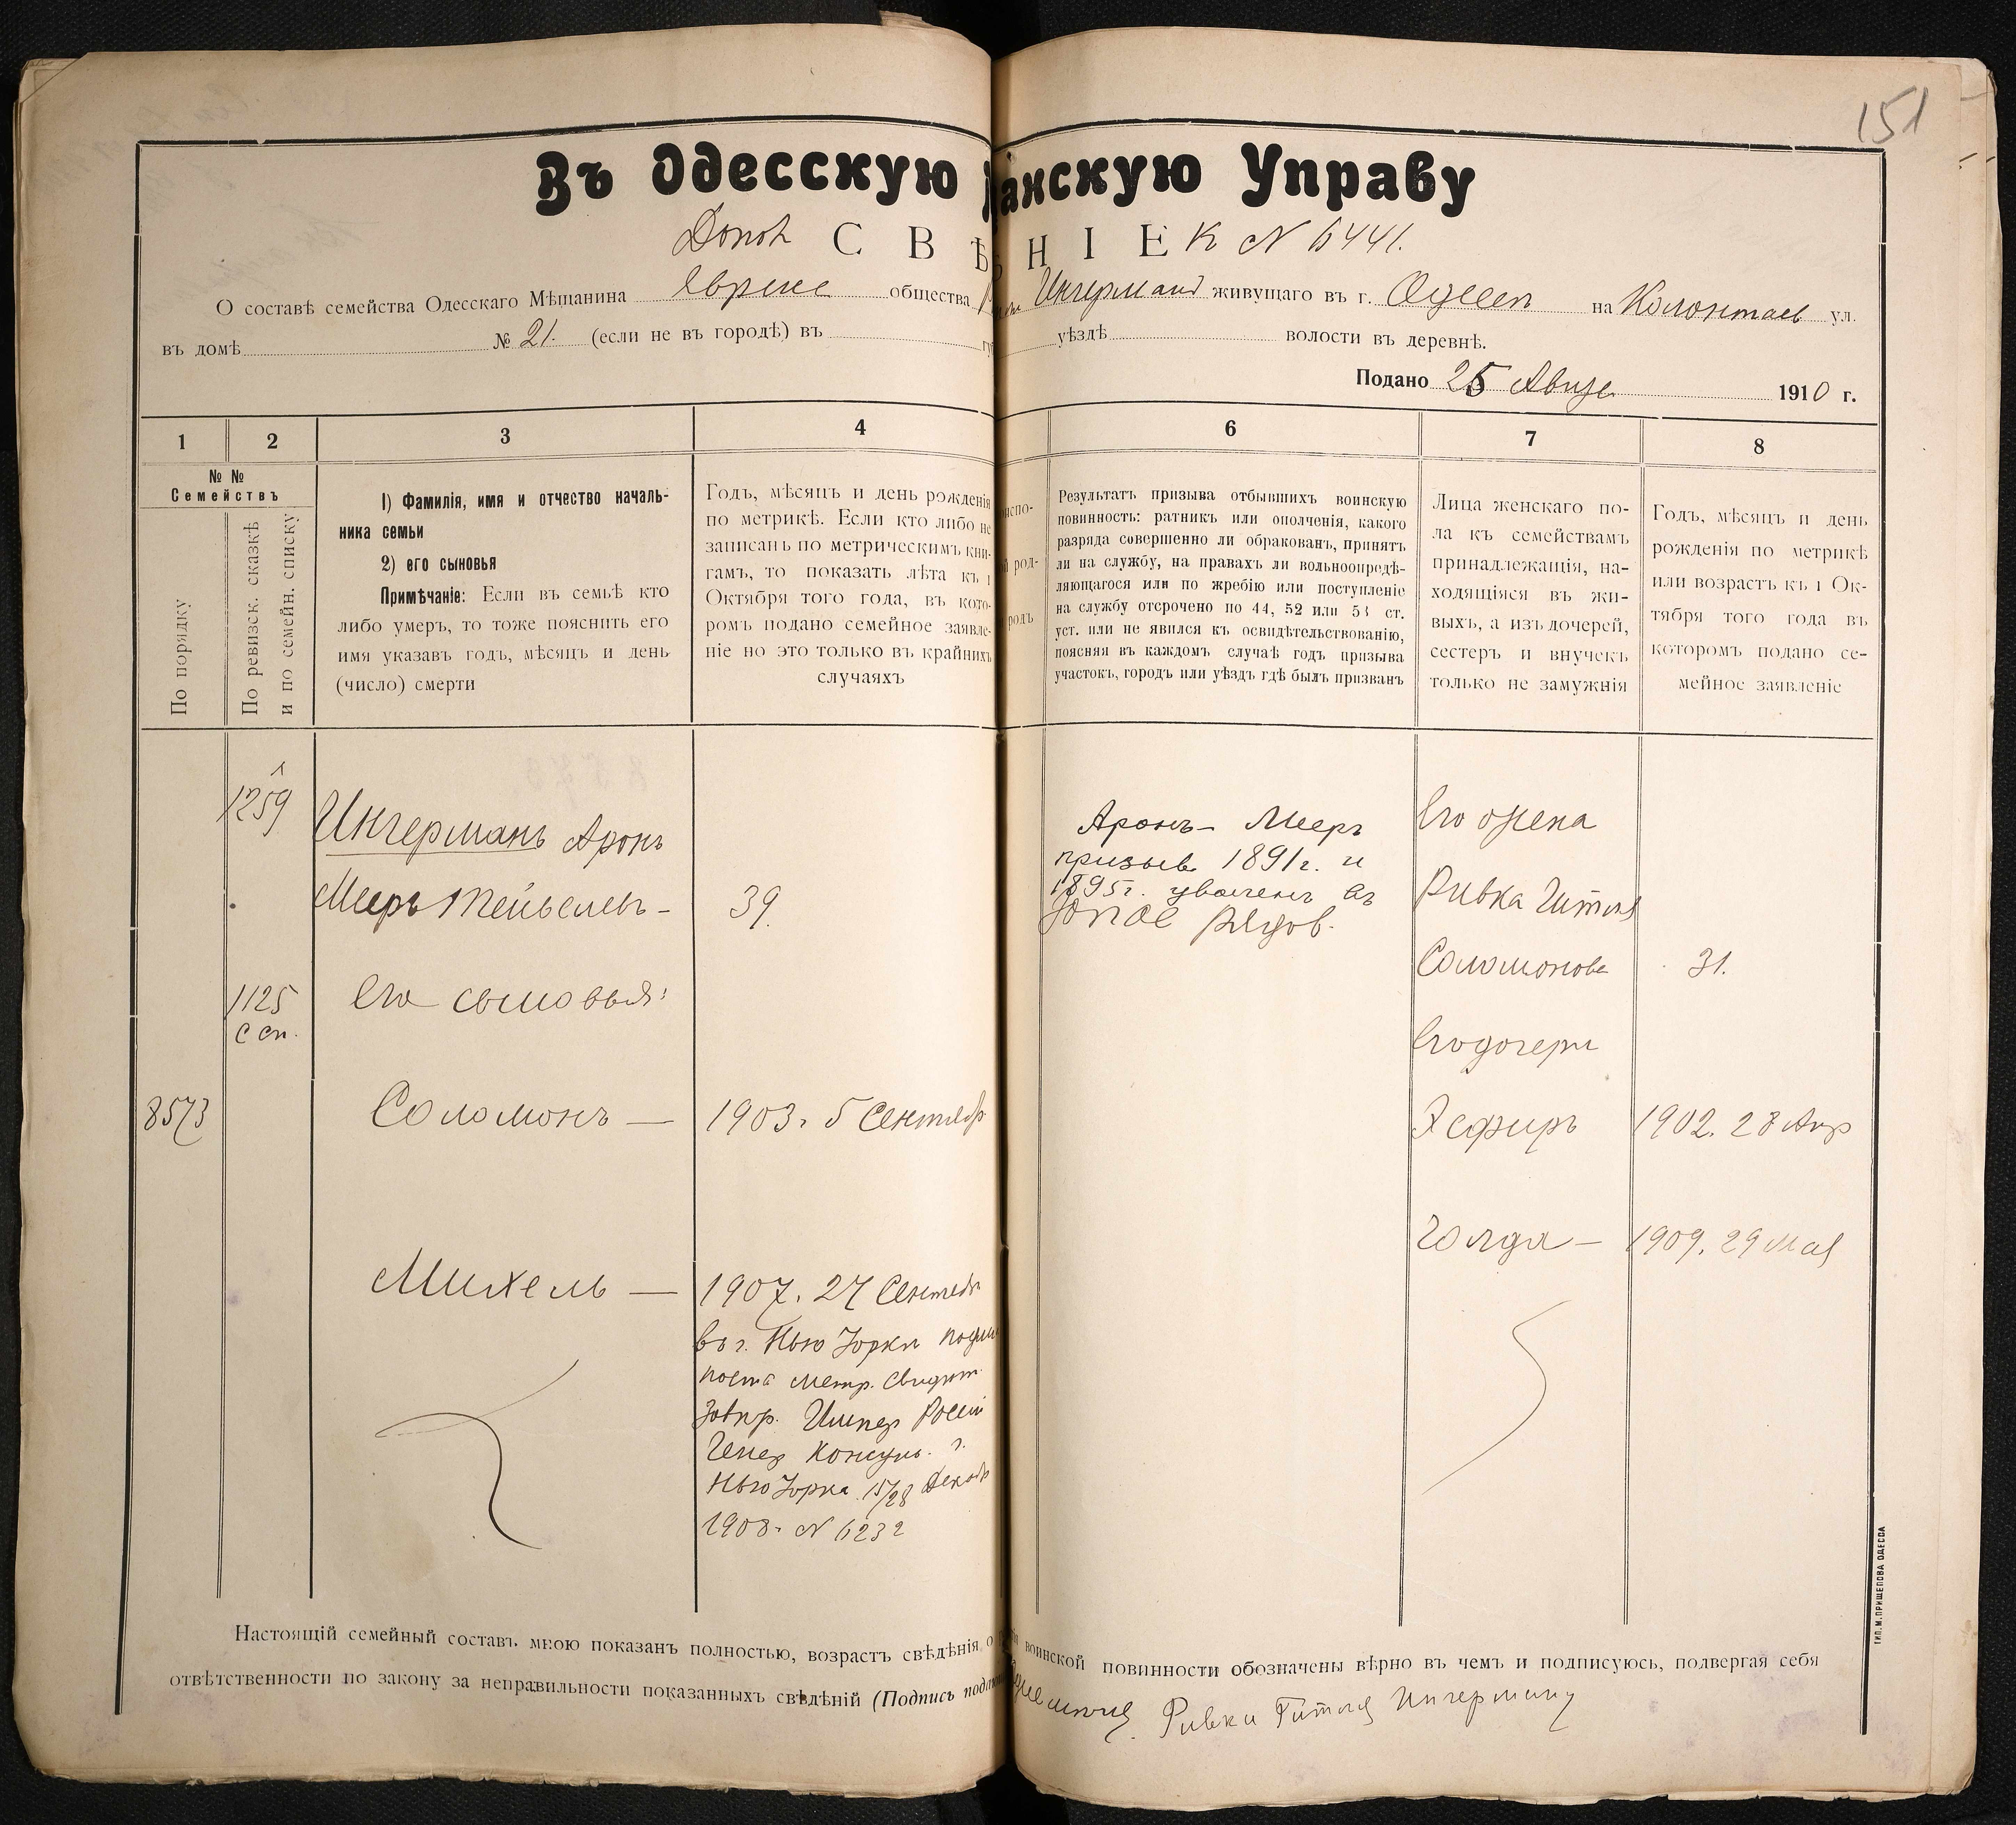 151
Въ Одесскую анскую Управу
С В Ѣ Н I Е к N 6441.
О составѣ семейства Одесскаго Мѣщанина Евреис общества Ингерман живущаго въ г. Одессѣ на Колонтаев ул.
въ домѣ № 21. (если не въ городѣ) въ уѣздѣ волости въ деревнѣ.
Подано 25 Авгус 1910 г.
1 2 3 4 6 7 8
№ №
Семействъ
По порядку
По ревизск. сказкѣ
и по семейн. списку
1) Фамилія, имя и отчество началь-
ника семьи
2) его сыновья
Примѣчаніе: Если въ семьѣ кто
либо умеръ, то тоже пояснить его
имя указавъ годъ, мѣсяцъ и день
(число) смерти
Годъ, мѣсяцъ и день рожденія
по метрикѣ. Если кто либо не
записанъ по метрическимъ кни-
гамъ, то показать лѣта къ 1
Октября того года, въ кото-
ромъ подано семейное заявле-
ніе но это только въ крайнихъ
случаяхъ
Результатъ призыва отбывшихъ воинскую
повинность: ратникъ или ополченія, какого
разряда совершенно ли обракованъ, принятъ
ли на службу, на правахъ ли вольноопредѣ-
ляющагося или по жребію или поступленіе
на службу отсрочено по 44, 52 или 53 ст.
уст. или не явился къ освидѣтельствованію,
поясняя въ каждомъ случаѣ годъ призыва
участокъ, городъ или уѣздъ гдѣ былъ призванъ
Лица женскаго по-
ла къ семействамъ
принадлежащія, на-
ходящіяся въ жи-
выхъ, а изъ дочерей,
сестеръ и внучекъ
только не замужнія
Годъ, мѣсяцъ и день
рожденія по метрикѣ
или возрастъ къ 1 Ок-
тября того года въ
которомъ подано се-
мейное заявленіе
1259
Ингерманъ Аронъ
Мееръ Тейвелевъ — 39.
1125
с сп.
Его сыновья:
8573
Соломонъ — 1903. 5 Сентябр
Михель — 1907. 27 Сентяб
въ г. Нью Іорки
метр. свидѣт.
Импер Россій
Генер Консул. г.
Нью Іорка 15/28 Декаб
1908. N 6232
Аронъ — Мееръ
призыв. 1891 г. и
1895 г. уволенъ въ
запас рядов.
Его жена
Ривка Гитля
Соломонова 31.
Его дочери
Эсфирь 1902. 28 Апр
Голда — 1909. 29 Мая
Настоящій семейный составъ мною показанъ полностью, возрастъ свѣдѣнія о воинской повинности обозначены вѣрно въ чемъ и подписуюсь, подвергая себя
отвѣтственности по закону за неправильности показанныхъ свѣдѣній (Подпись Ривки Гитля Ингерману
ТИП. М. ПРИЩЕПОВА ОДЕССА